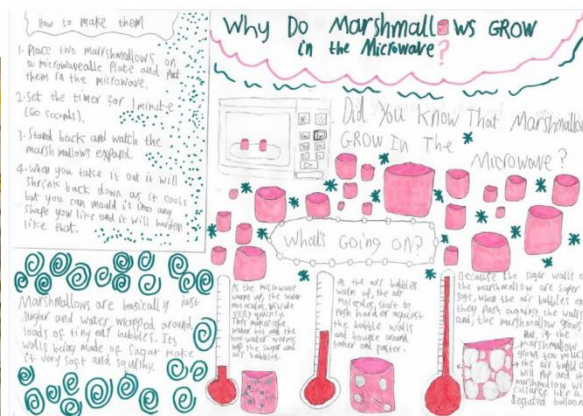 How to make them
1. Place two marshmallows on
a microwavable plate and put
them in the microwave.
2. Set the timer for 1 minute
(60 seconds).
3. Stand back and watch the
marshmallows expand.
4. When you take it out it will
shrink back down as it cools
but you can mould it into any
shape you like and it will harden
like that.
Why Do Marshmallows GROW
in the Microwave?
Did You Know That Marshmallow
GROW In The
Microwave?
What's Going on?
Marshmallows are basically just
sugar and water wrapped around
loads of tiny air bubbles. Its
walls being made of sugar make
it very soft and squishy.
As the microwave
warms up, the water
molecules vibrate
very quickly.
This makes the
water hot and the
hot water warms
up the sugar and
air bubbles.
As the air bubbles
warm up, the air
molecules start to
push hard against
the bubble walls
and bounce around
faster and faster.
Because the sugar walls of
the marshmallow are super
soft, when the air bubbles
they push against the walls
and, the marshmallow grow
But if the
marshmallow
grow too much
the air bubbles
will pop and the
marshmallow will
collapse like a
deflated balloon